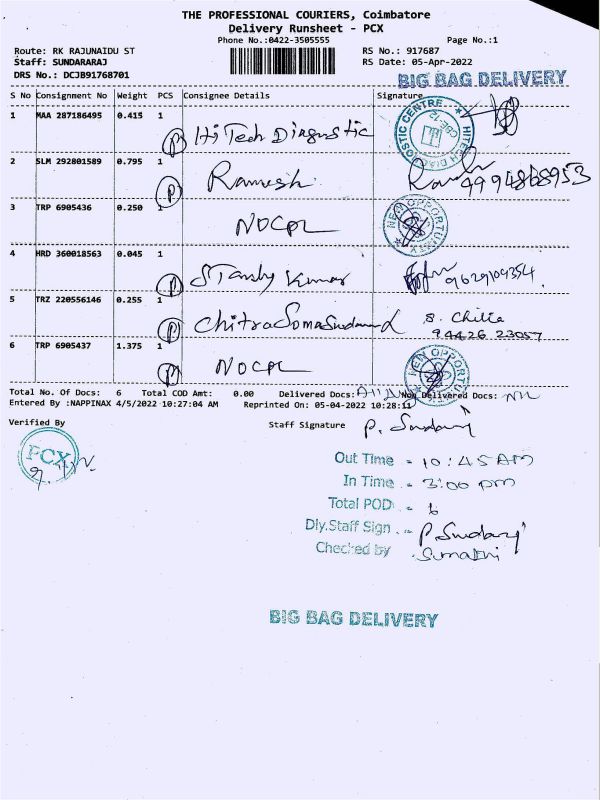 THE PROFESSIONAL COURIERS, Coimbatore
Delivery Runsheet - PCX
Phone No.:0422-3505555 Page No.:1
Route: RK RAJUNAIDU ST RS No.: 917687
Staff: SUNDARARAJ RS Date: 05-Apr-2022
DRS No.: DCJB91768701
BIG BAG DELIVERY
S No Consignment No Weight PCS Consignee Details Signature
1 MAA 287186495 0.415 1 (P) HiTech Diagnostic
2 SLM 292801589 0.795 1 (P) Ramesh 9994868953
3 TRP 6905436 0.250 1 NOCPL
4 HRD 360018563 0.045 1 (P) Kumar 9629109354
5 TRZ 220556146 0.255 1 (P) Chitra S. Chitra
94426 23057
6 TRP 6905437 1.375 1 (P) NOCPL
Total No. Of Docs: 6 Total COD Amt: 0.00 Delivered Docs: All Non Delivered Docs: Nil
Entered By :NAPPINAX 4/5/2022 10:27:04 AM Reprinted On: 05-04-2022 10:28:11
Verified By Staff Signature P. Sundaraj
PCX
Out Time - 10:45 AM
In Time - 3:00 pm
Total POD - 6
Dly.Staff Sign - P. Sundaraj
Checked by Sumathi
BIG BAG DELIVERY